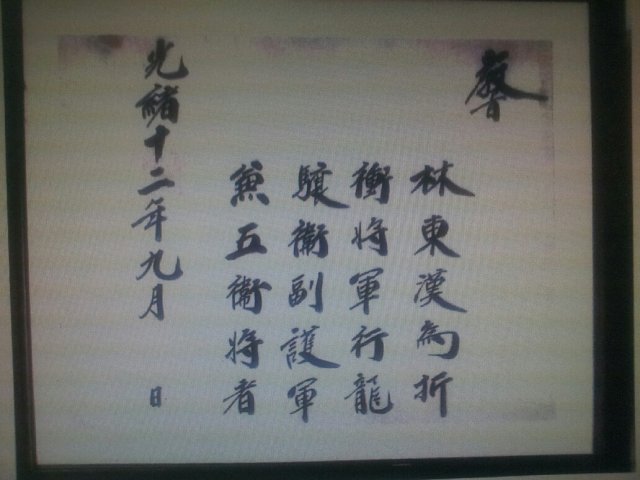 教
林東漢為折
衝將軍行龍
驤衛副護軍
兼五衛將者
光緒十二年九月 日